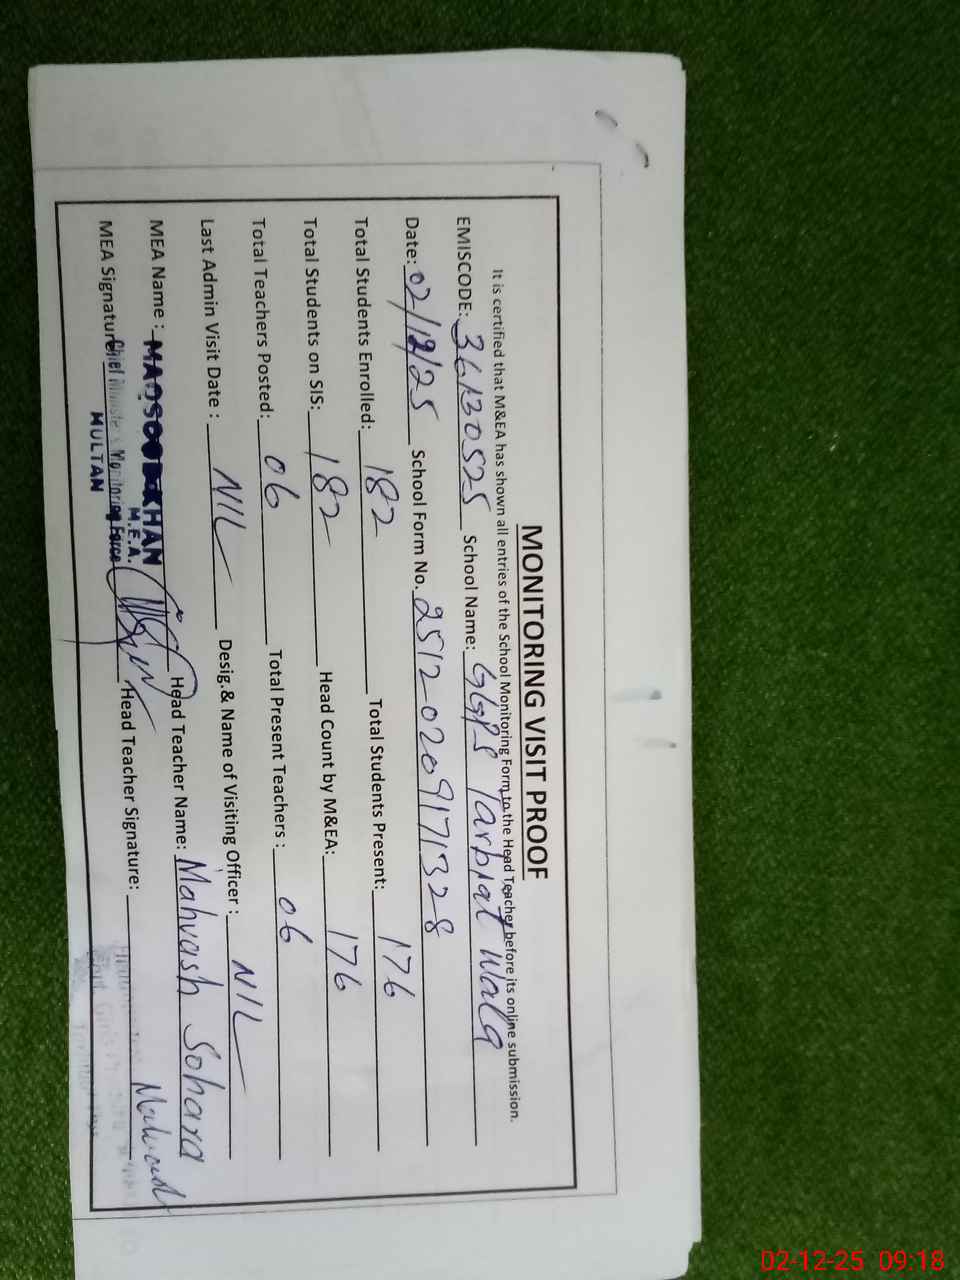 MONITORING VISIT PROOF
It is certified that M&EA has shown all entries of the School Monitoring Form to the Head Teacher before its online submission.
EMISCODE: 36130525 School Name: GGPS Tarbiat Wala
Date: 02/12/25 School Form No. 2512-0209171328
Total Students Enrolled: 182 Total Students Present: 176
Total Students on SIS: 182 Head Count by M&EA: 176
Total Teachers Posted: 06 Total Present Teachers : 06
Last Admin Visit Date : NIL Desig.& Name of Visiting Officer : NIL
MEA Name : KHAN Head Teacher Name: Mahvash Sohara
M.E.A.
MEA Signature Chief Minister's Monitoring Force Head Teacher Signature: Mahvash
MULTAN
02-12-25 09:18